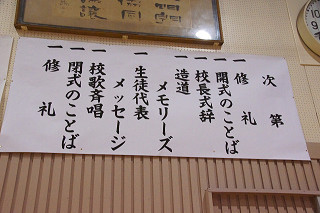 次第
一 修礼
一 開式のことば
一 校長式辞
造道
メモリーズ
一 生徒代表
メッセージ
一 校歌斉唱
一 閉式のことば
一 修礼